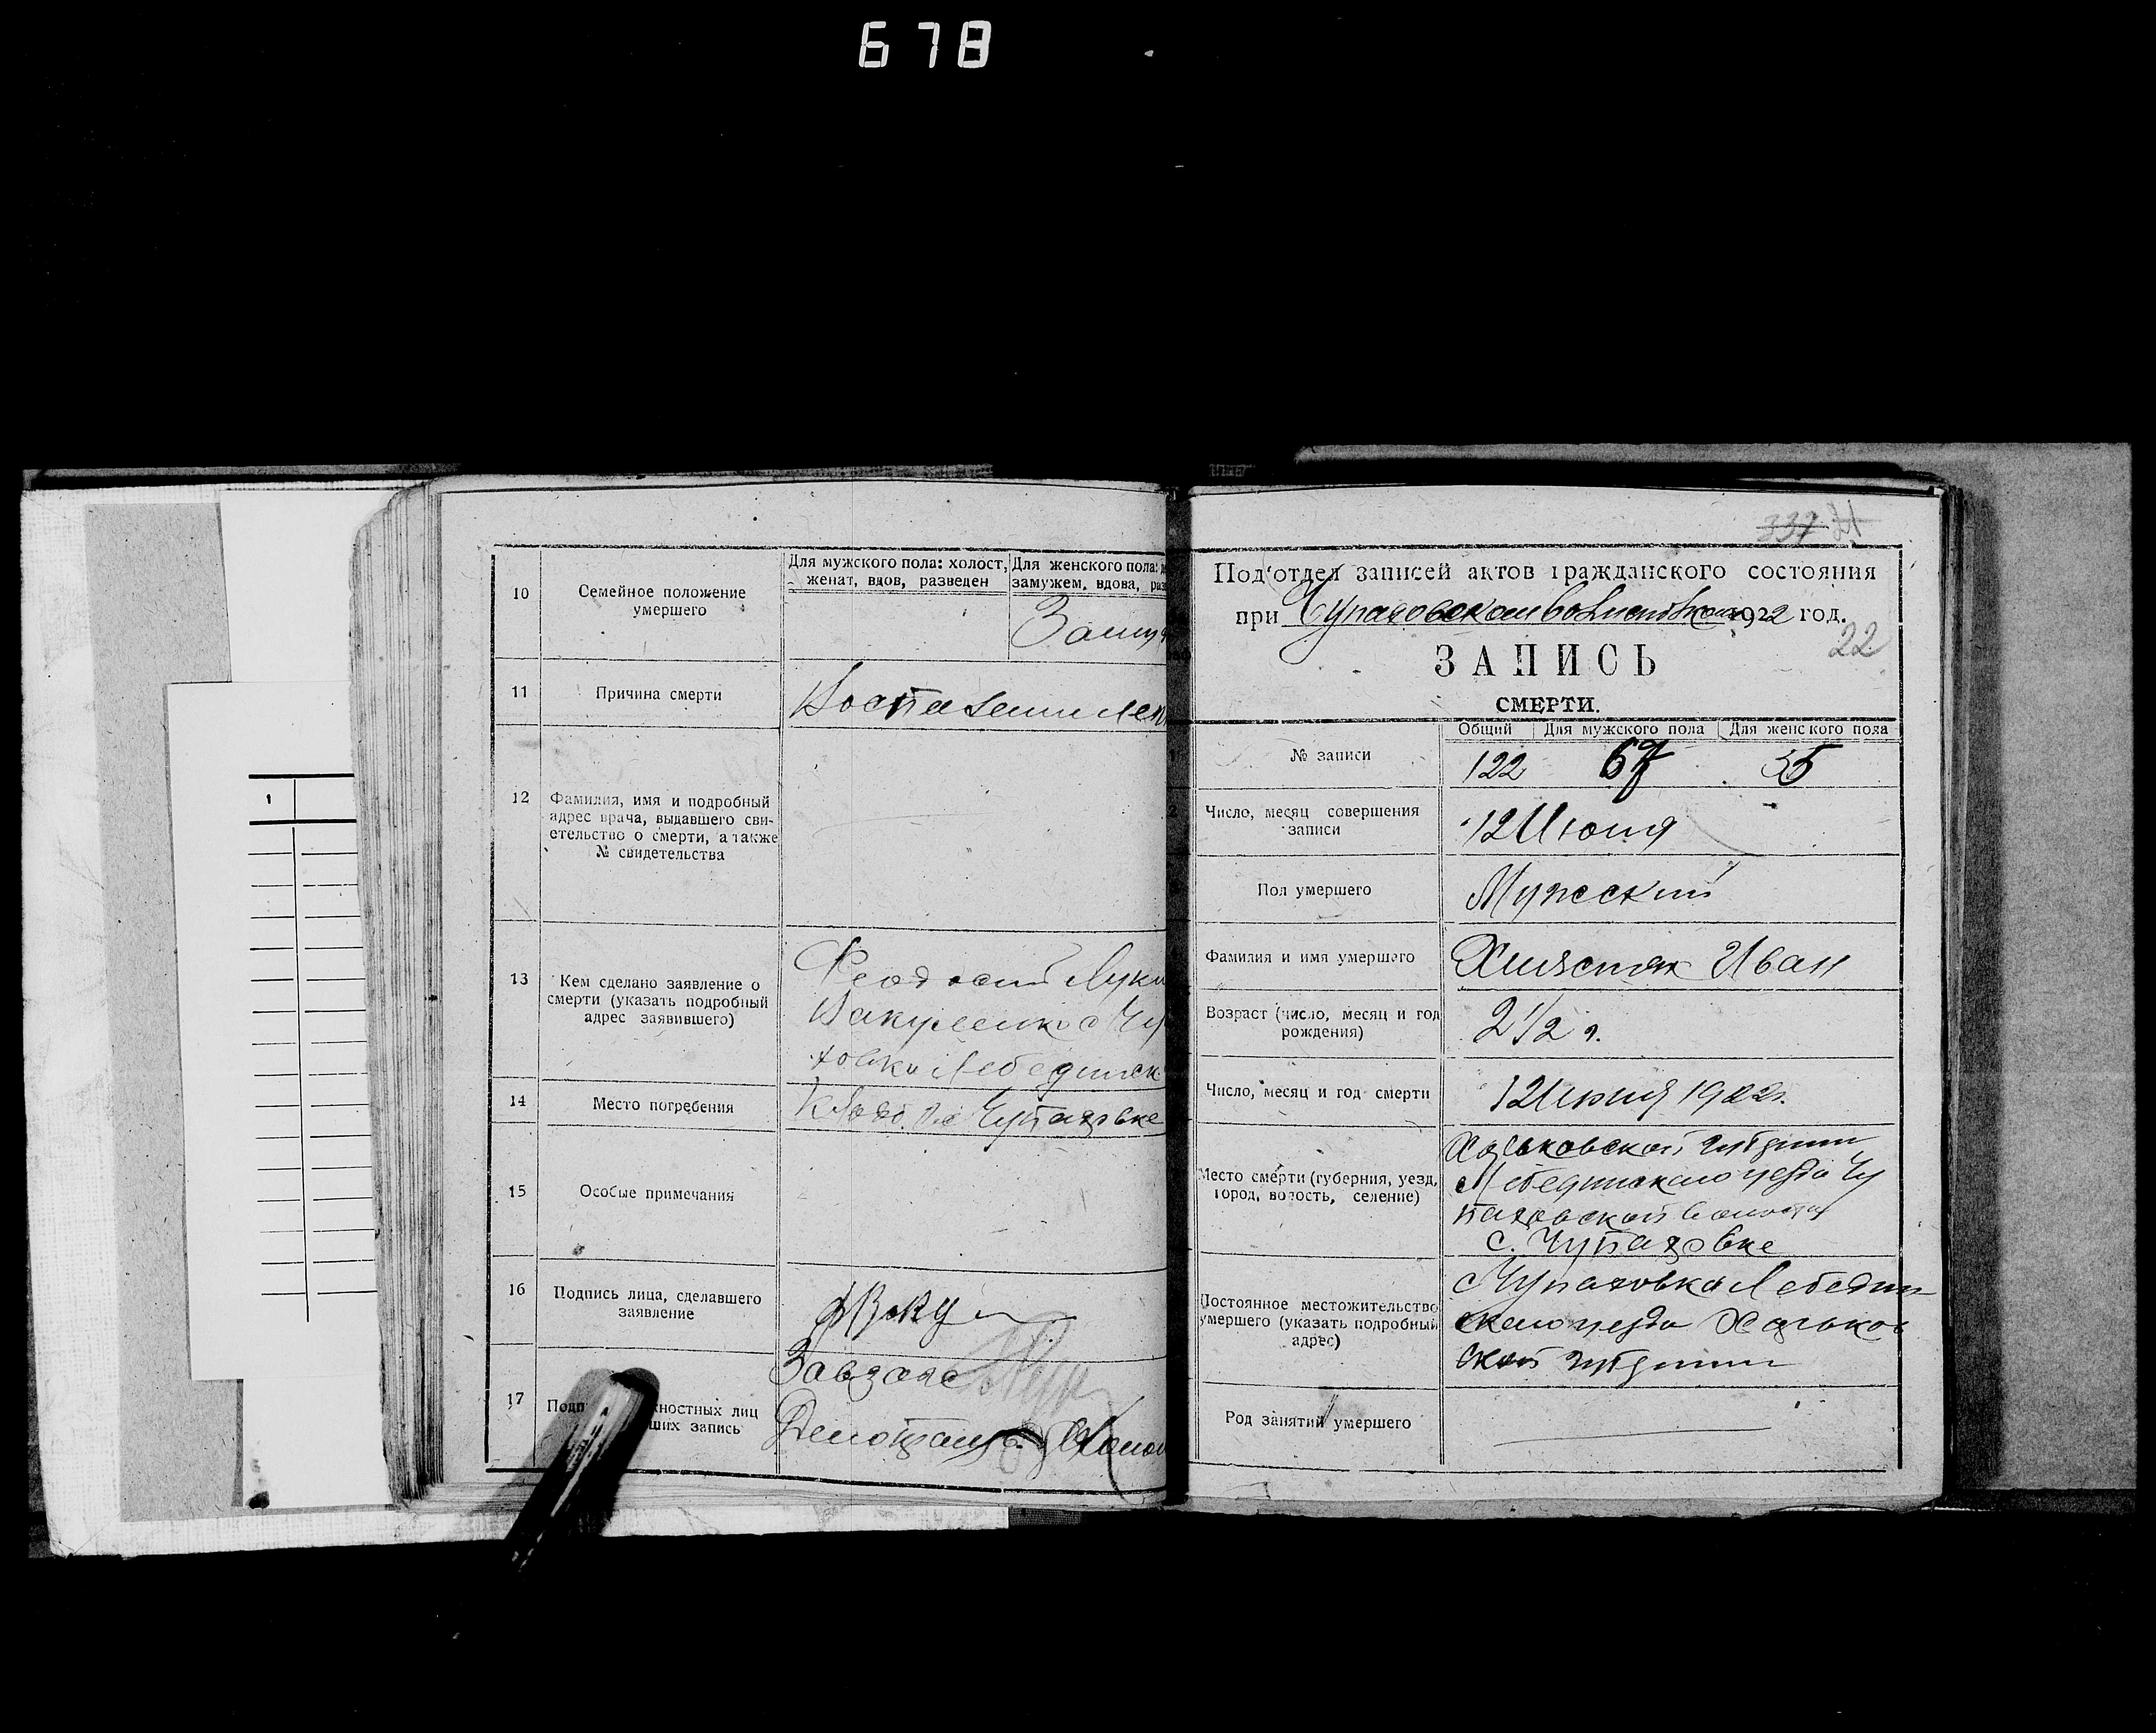 678
10
Семейное положение
умершего
Для мужского пола: холост,
женат, вдов, разведен
Для женского пола:
замужем, вдова, раз
Замуж
11
Причина смерти
12
Фамилия, имя и подробный
адрес врача, выдавшего сви-
етельство о смерти, а также
№ свидетельства
13
Кем сделано заявление о
смерти (указать подробный
адрес заявившего)
Феодосий Луки
Вакуленко с Чу
ховки Лебединск
14
Место погребения
Чупаховке
15
Особые примечания
16
Подпись лица, сделавшего
заявление
17
Подп ностных лиц
ших запись
Завзагс
1
337 21
Под'отдел записей актов гражданского состояния
при Чупаховском волисполкоме 1922 год.
22
ЗАПИСЬ
СМЕРТИ.
Общий Для мужского пола Для женского пола
№ записи
122 67 55
2
Число, месяц совершения
записи
12 Июня
Пол умершего
Мужеский
Фамилия и имя умершего
Иван
Возраст (число, месяц и год
рождения)
2 1/2 г.
Число, месяц и год смерти
12 Июня 1922 г.
Место смерти (губерния, уезд,
город, волость, селение)
Харьковской губернии
Лебединского уезда Чу
паховской волости
с. Чупаховке
Постоянное местожительство
умершего (указать подробный
адрес)
с Чупаховка Лебедин
ского уезда Харьков
ской губернии
Род занятий умершего